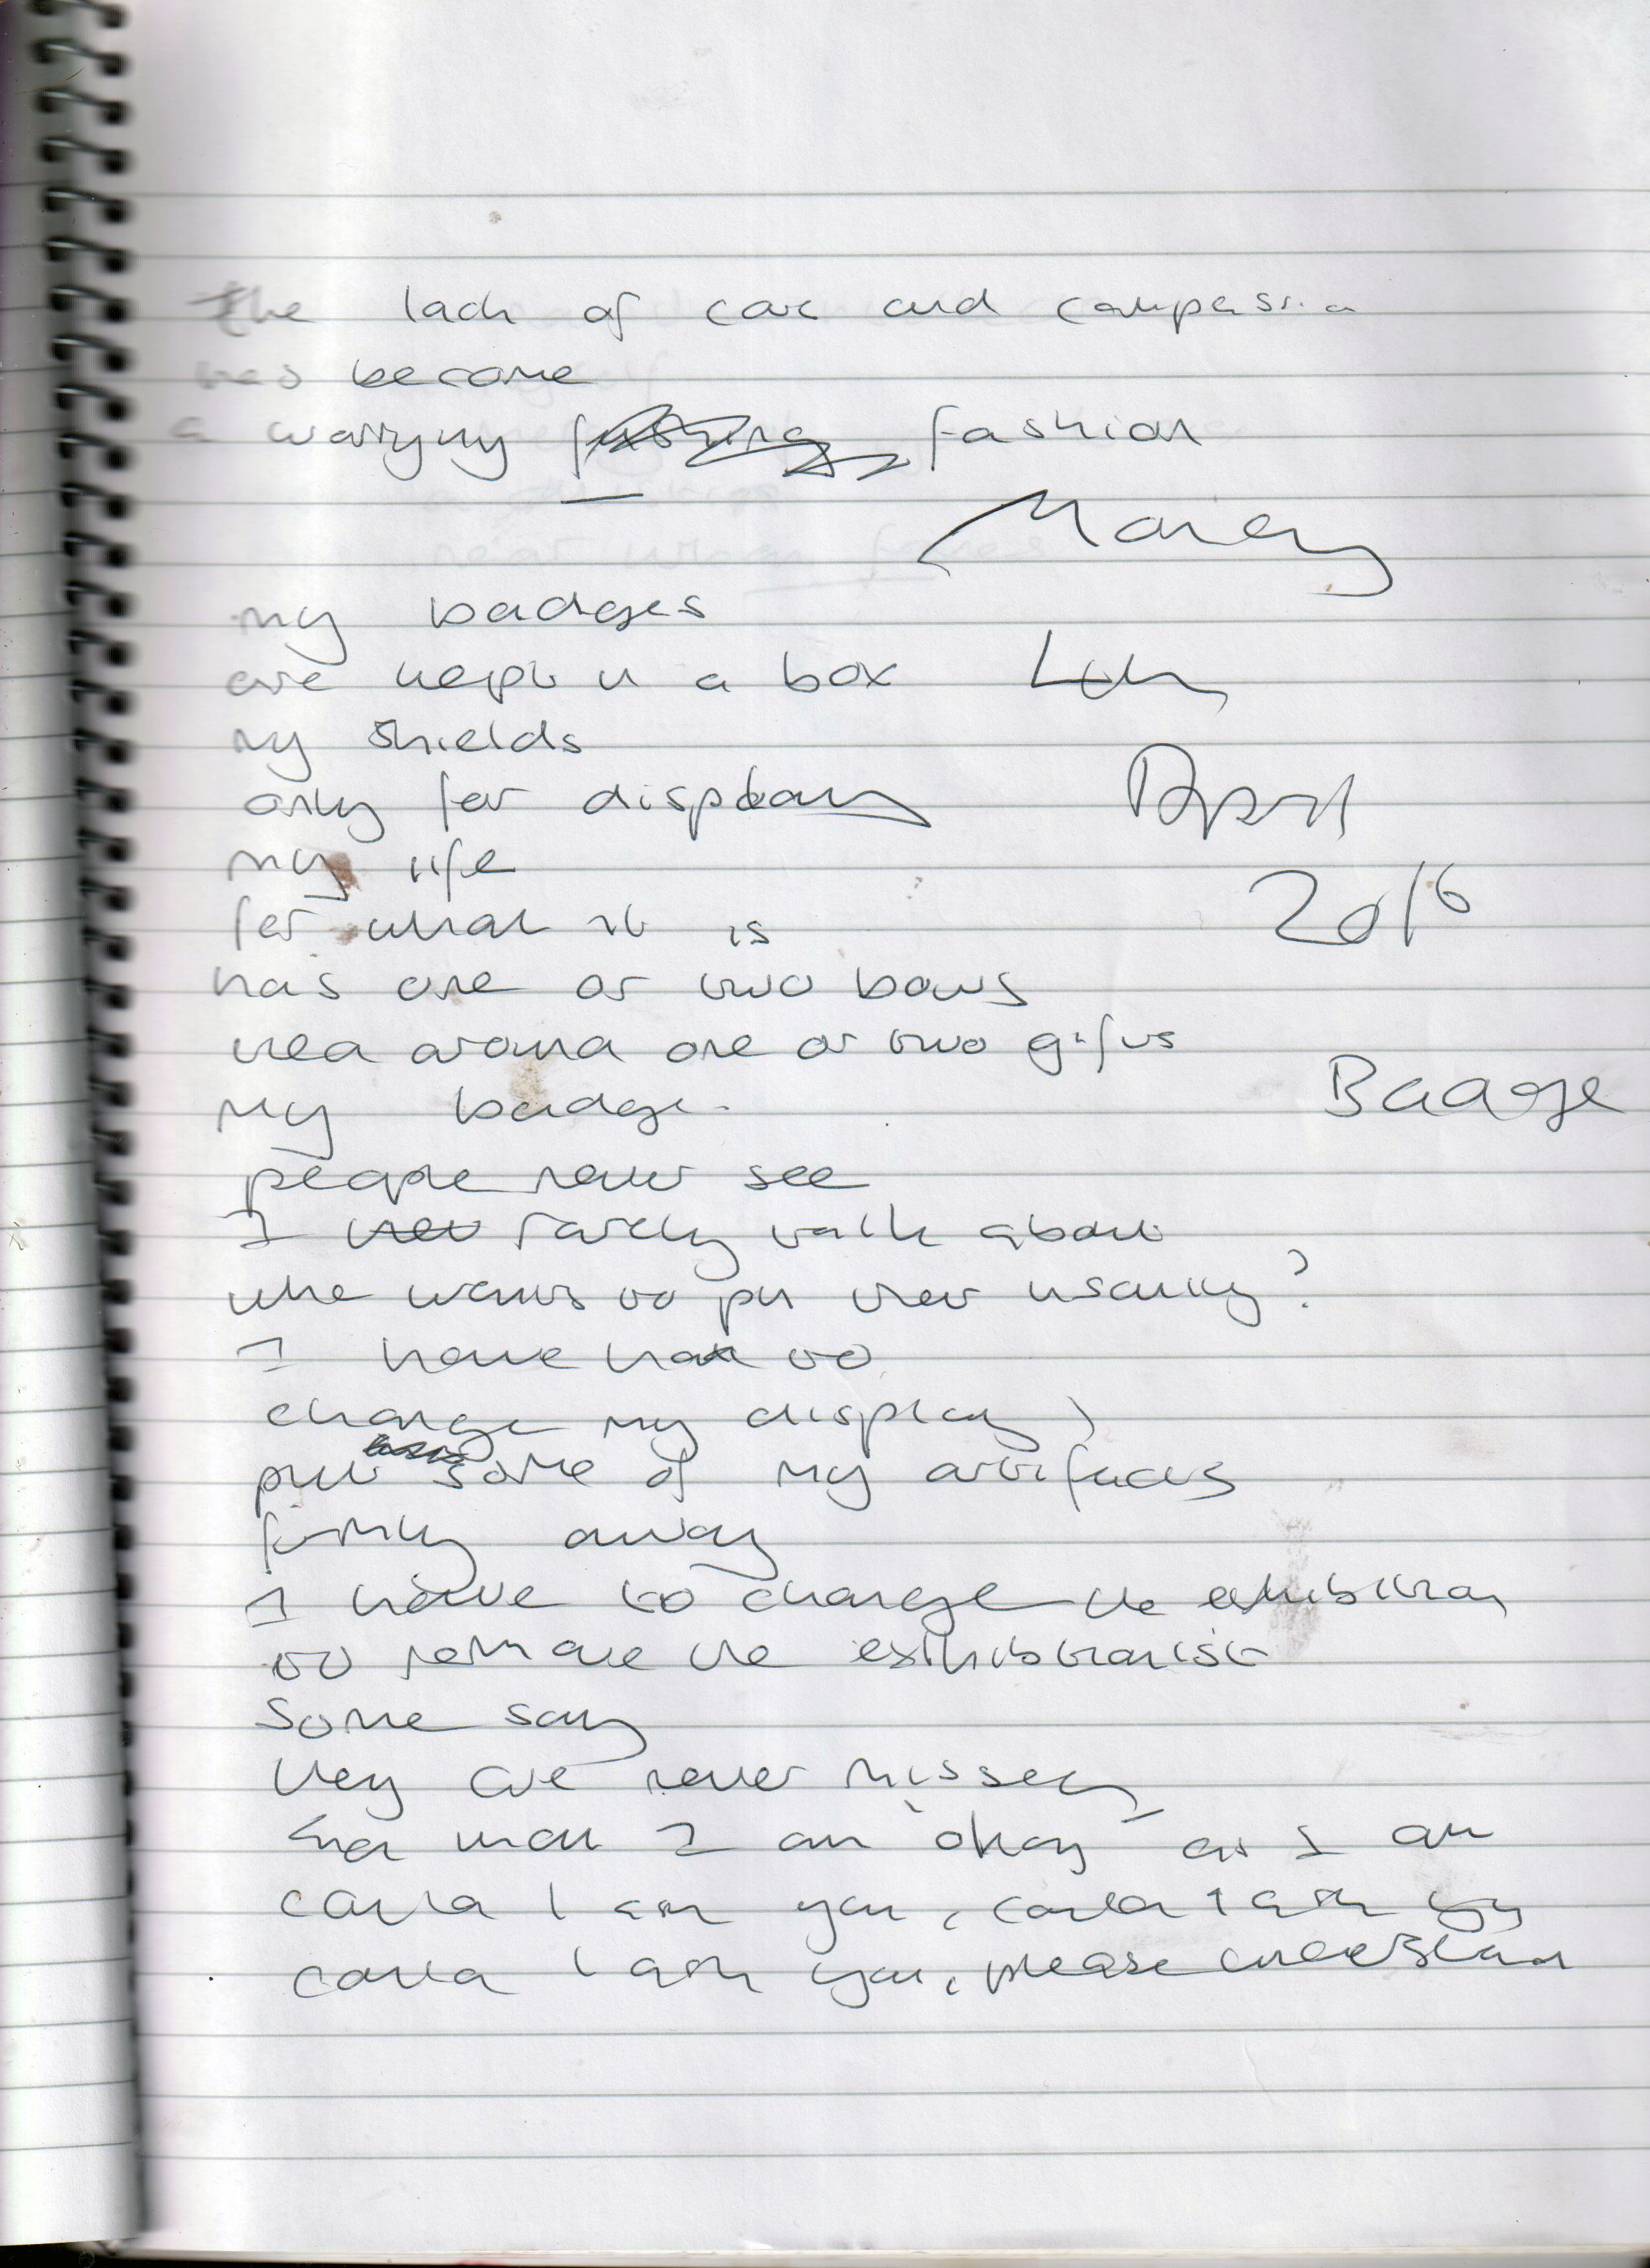 the lack of care and compassion
has become
a worrying fashion
Money
my badges
are kept in a box
my shields
only for display
my life
for what it is
has one or two bows
tied around one or two gifts
my badge
Badge
people never see
I rarely walk about
who wants to view usually?
I have had to
change my display,
put some of my artifacts
firmly away
I have to change the exhibition
to remove the exhibitionist
some say
they are never missed
I am okay as I am
I ask you, I ask you
I ask you, please understand
April
2016